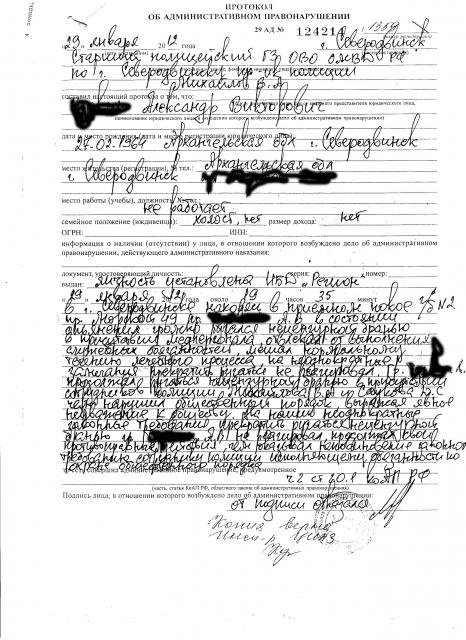 ПРОТОКОЛ
ОБ АДМИНИСТРАТИВНОМ ПРАВОНАРУШЕНИИ
29 АД № 124214
29 января 2012 года г. Северодвинск
Старший полицейский
по г. Северодвинску пр-к полиции
Михайлов В.А
составил настоящий протокол о том, что:
Александр Викторович
дата и место рождения (дата и место регистрации юридического лица)
27.02.1964 Архангельская обл г. Северодвинск
место жительства (регистрации), № тел.: Архангельская обл
г Северодвинск
место работы (учебы), должность, № тел.:
не работает
семейное положение (иждивенцы): холост, нет размер дохода: нет
ОГРН: ИНН:
информация о наличии (отсутствии) у лица, в отношении которого возбуждено дело об административном
правонарушении, действующего административного наказания:
документ, удостоверяющий личность: серия: номер:
выдан: личность установлена ИБД "Регион"
29 января 12 года около 19 часов 35 минут
в г. Северодвинске находясь в приемном покое №2
в состоянии
опьянения громко ругался нецензурной бранью
в присутствии медперсонала отвлекая от выполнения
служебных обязанностей мешал нормальному
течению лечебного процесса на неоднократные
замечания прекратить ругаться не реагировал гр.
продолжал ругаться нецензурной бранью в присутствии
сотрудников полиции Михайлова В.А и
чем нарушил общественный порядок выражая явное
неуважение к обществу. На наши неоднократные
законные требования прекратить ругаться нецензурной
бранью гр. А.В не реагировал продолжал свои
противоправные действия чем оказывал неповиновение законному
требованию сотрудника полиции исполняющему обязанности по
охране общественного порядка
ч 2 ст 20.1 КоАП РФ
(часть, статья КоАП РФ, областного закона об административных правонарушениях)
Подпись лица, в отношении которого возбуждено дело об административном правонарушении:
от подписи отказался
Копия верна